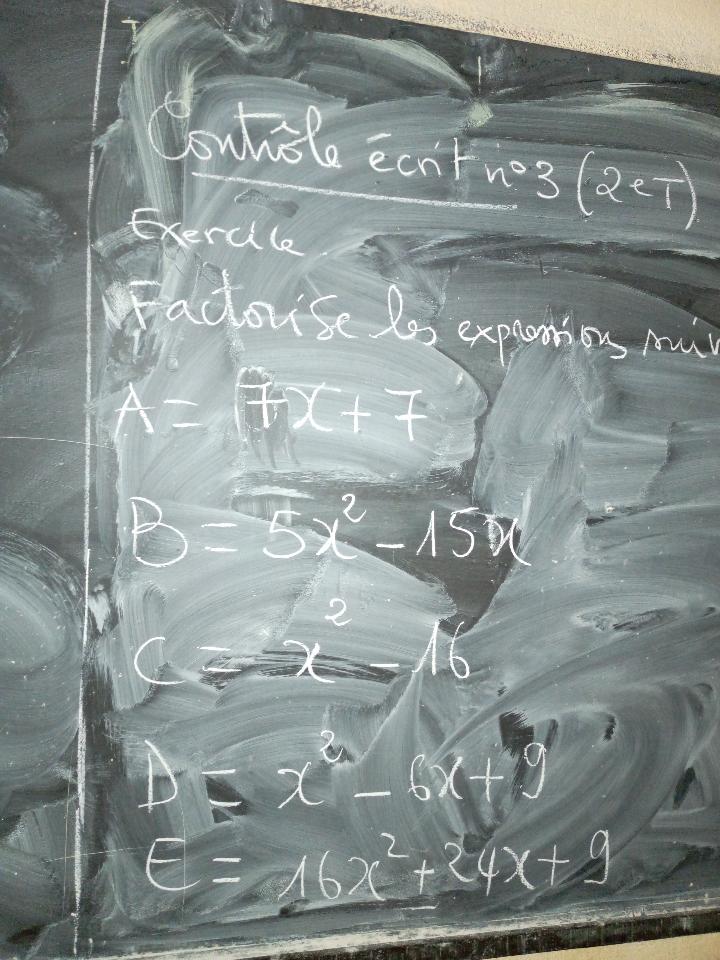 Contrôle écrit n°3 (2eT)
Exercice
Factorise les expressions suiv
A = 7x + 7
B = 5x² - 15x
C = x² - 16
D = x² - 6x + 9
E = 16x² + 24x + 9